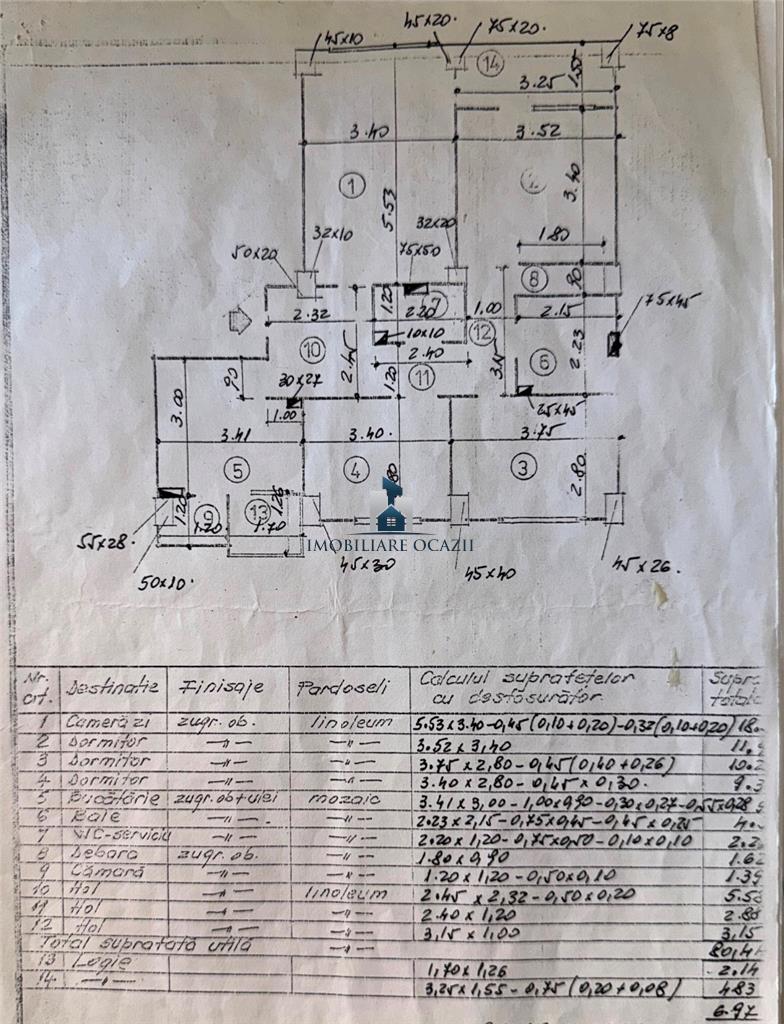 45x10
45x20.
75x20.
75x8
14
3.25
1.50
3.40
3.52
1
5.53
3.40
32x10
32x20
1.80
50x20
75x50
8
.90
75x45
2.32
1.20
2.20
7
1.00
2.15
10x10
12
10
2.45
2.40
6
2.23
3.00
.90
30x27
1.20
11
1.00
25x45
3.41
3.40.
3.75
5
4
3
2.80
1.20
9
1.20
13
1.26
1.70
55x28.
IMOBILIARE OCAZII
50x10.
45x30
45x40
45x26.
Nr. crt. Destinatie Finisaje Pardoseli Calculul suprafetelor cu desfăsurător Supra totala
1 Cameră zi zugr. ob. linoleum 5.53x3.40-0,45(0,10+0,20)-0,32(0,10+0,20) 18.
2 Dormitor —"— —"— 3.52x3,40 11.9
3 Dormitor —"— —"— 3.75x2,80-0,45(0,40+0,26) 10.2
4 Dormitor —"— —"— 3.40x2,80-0,45x0,30. 9.3
5 Bucătărie zugr. ob+ulei mozaic 3.41x3,00-1,00x0,90-0,30x0,27-0,55x0,28 9
6 Baie —"— —"— 2.23x2,15-0,75x0,45-0,45x0,25 4.
7 WC-serviciu —"— —"— 2.20x1,20-0,75x0,50-0,10x0,10 2.2
8 Debara zugr. ob. —"— 1.80x0,90 1.62
9 Cămară —"— —"— 1.20x1,20-0,50x0,10 1.39
10 Hol —"— linoleum 2.45x2,32-0,50x0,20 5.58
11 Hol —"— —"— 2.40x1,20 2.88
12 Hol —"— —"— 3,15x1,00 3,15
Total suprafată utilă —"— 80,44
13 Logie 1,70x1,26 2.14
14 —"— 3,25x1,55-0,75(0,20+0,08) 4.83
6.97